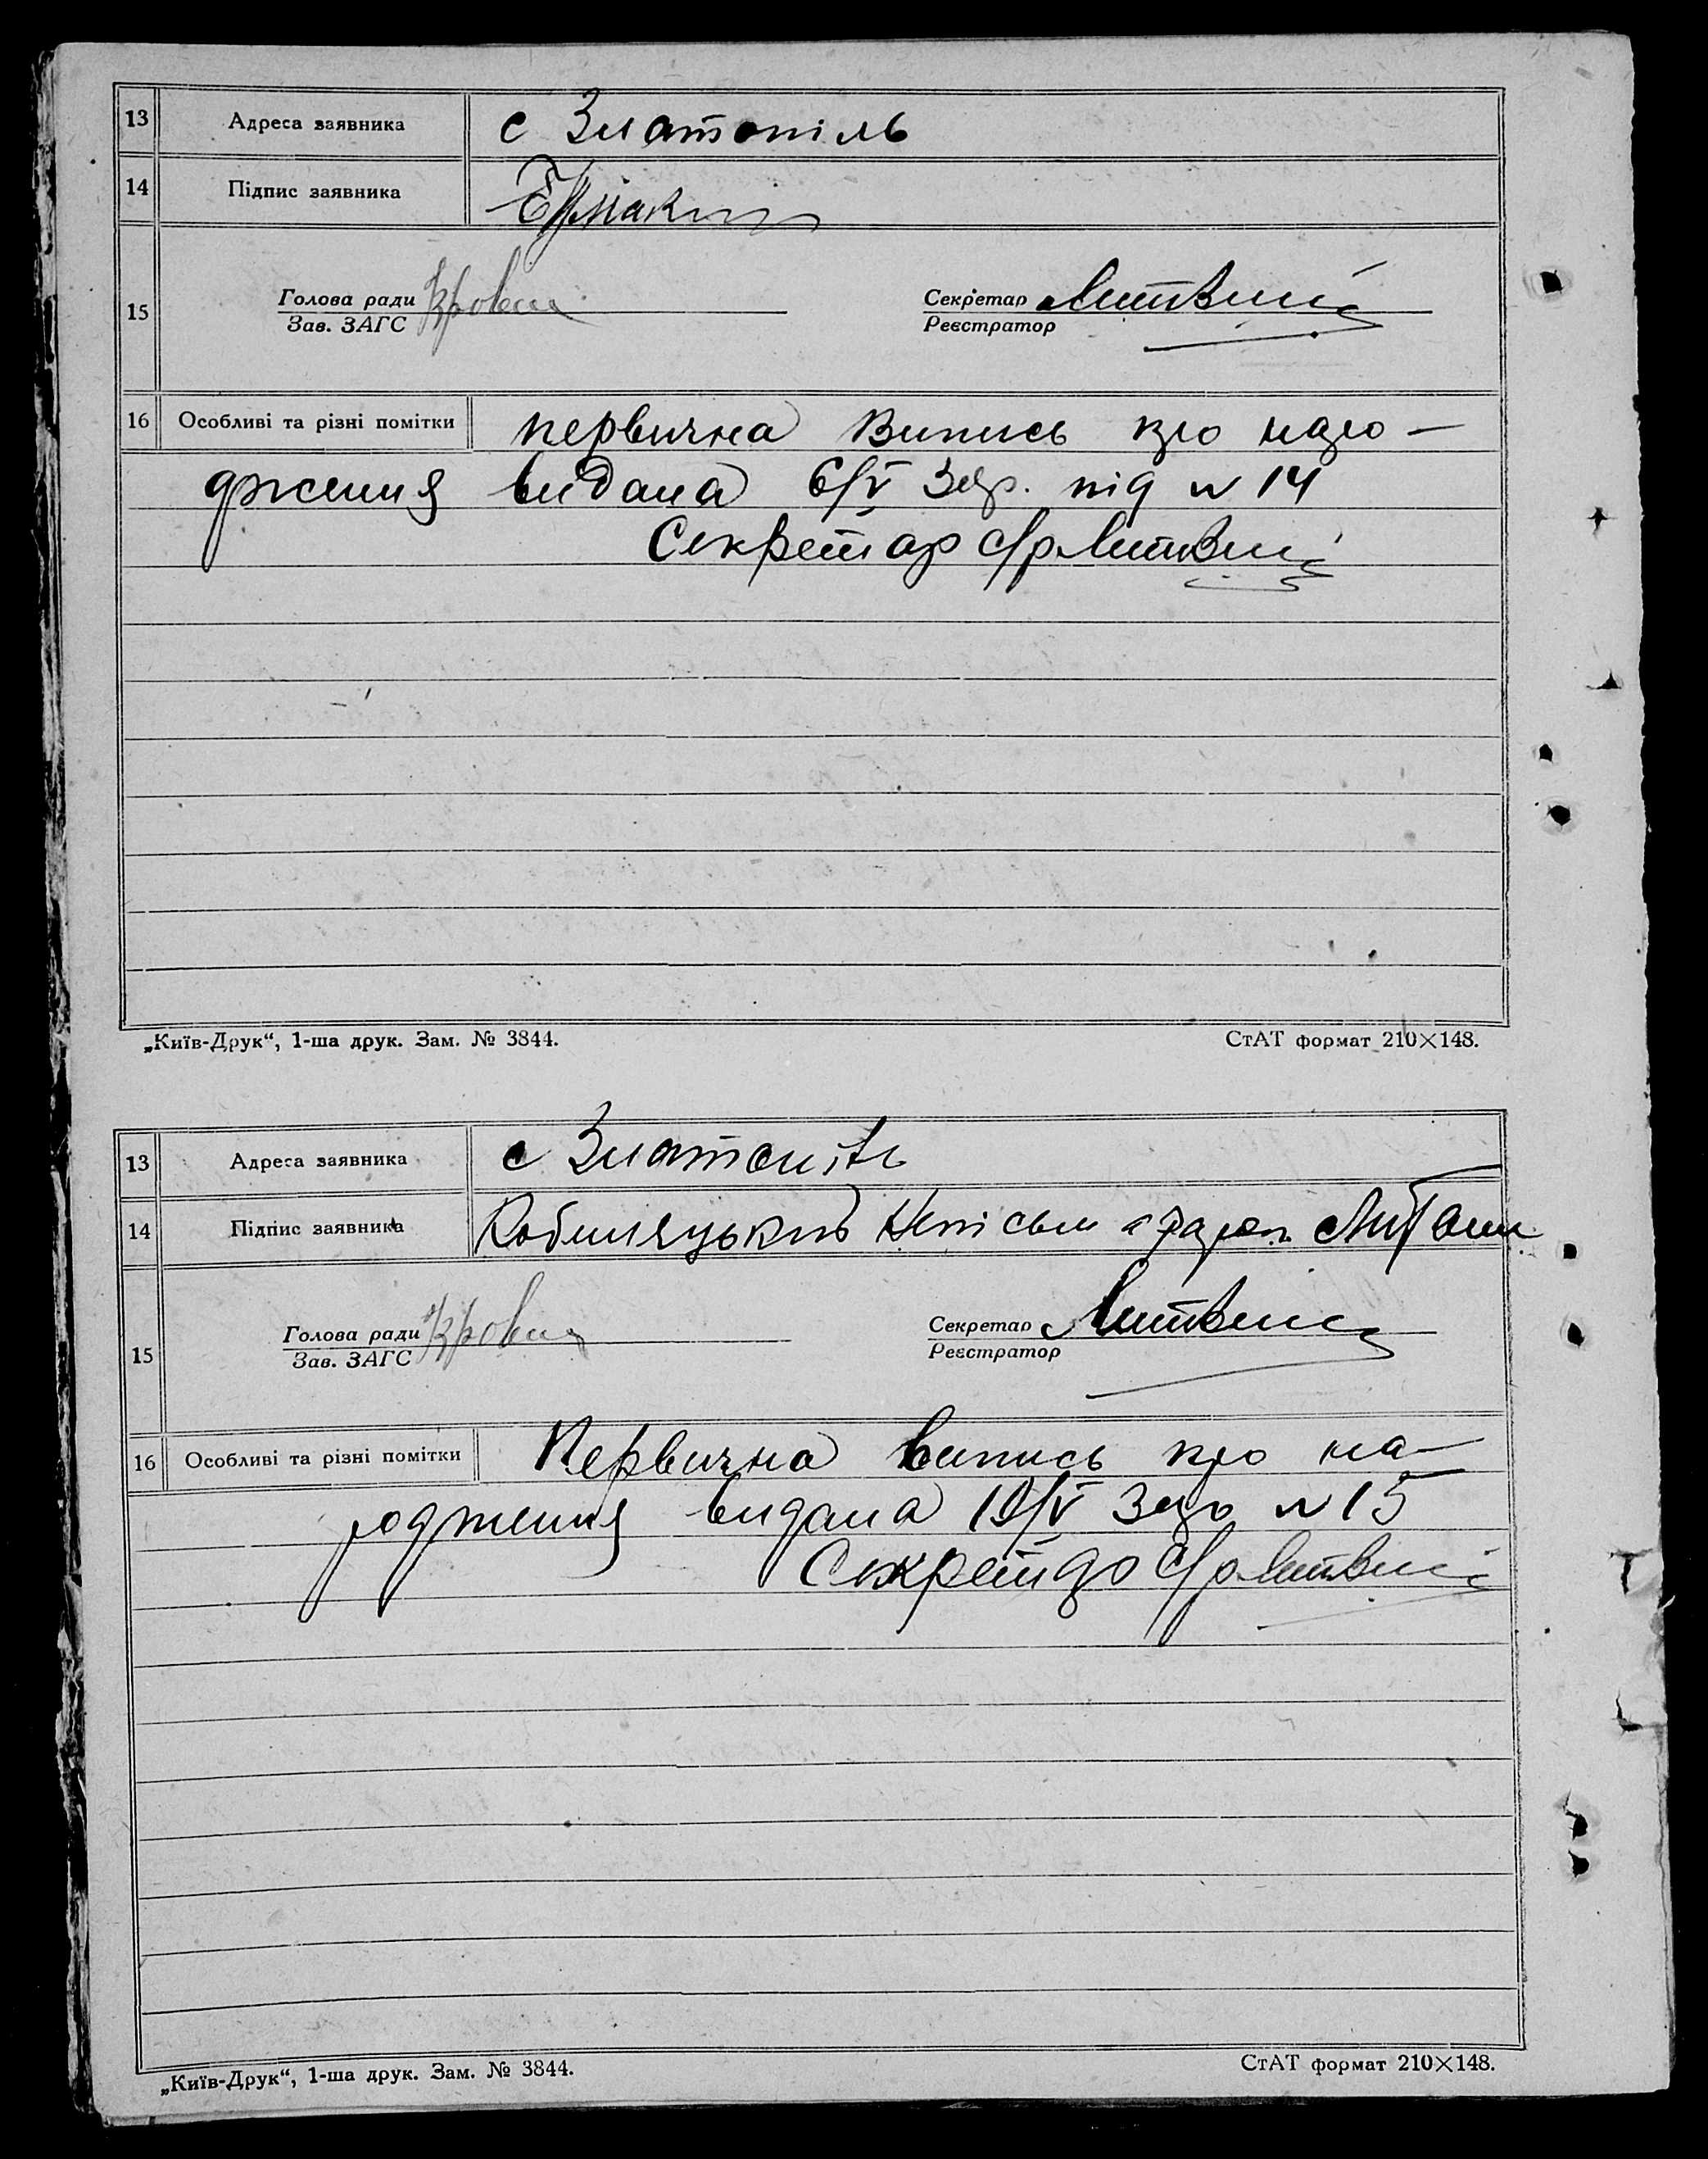 13 Адреса заявника с Златопіль
14 Підпис заявника
15 Голова ради Секретар Литвин
Зав. ЗАГС Реєстратор
16 Особливі та різні помітки первична Випись про наро-
дження видана 6/V 3 під № 14
Секретар с/р Литвин
„Київ-Друк“, 1-ша друк. Зам. № 3844. СтАТ формат 210×148.
13 Адреса заявника с Златопіль
14 Підпис заявника Кобиляцький
15 Голова ради Секретар Литвин
Зав. ЗАГС Реєстратор
16 Особливі та різні помітки Первична випись про на-
родження видана 10/V № 15
Секретар с/р Литвин
„Київ-Друк“, 1-ша друк. Зам. № 3844. СтАТ формат 210×148.